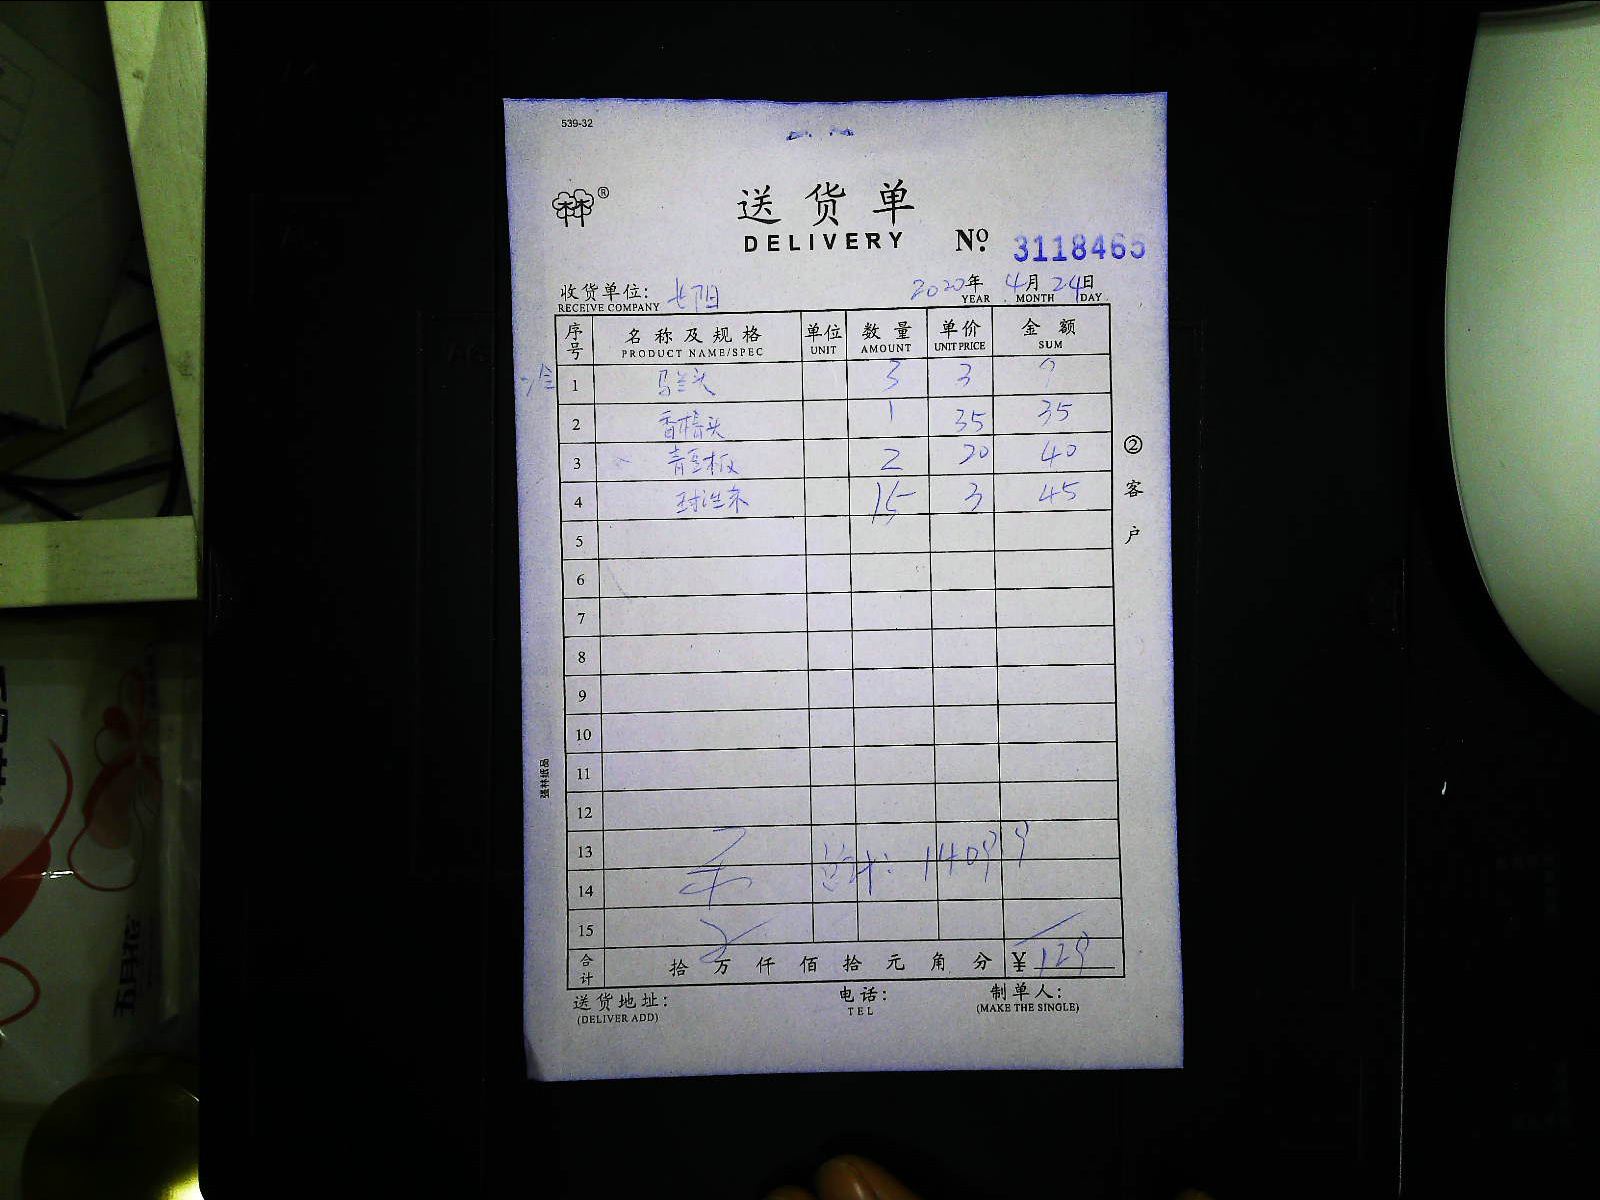 539-32
林®
送货单
DELIVERY
No. 3118465
收货单位: 七阳 2020年 4月 24日
RECEIVE COMPANY YEAR MONTH DAY
序号 名称及规格 单位 数量 单价 金额
PRODUCT NAME/SPEC UNIT AMOUNT UNIT PRICE SUM
冷 1 马兰头 3 3 9
2 香椿头 1 35 35
3 青豆板 2 20 40
4 15 3 45
5
6
7
8
9
10
11
12
13
总计: 1409
14
15
合计 拾 万 仟 佰 拾 元 角 分 ¥ 129
送货地址: 电话: 制单人:
(DELIVER ADD) TEL (MAKE THE SINGLE)
② 客户
强林纸品